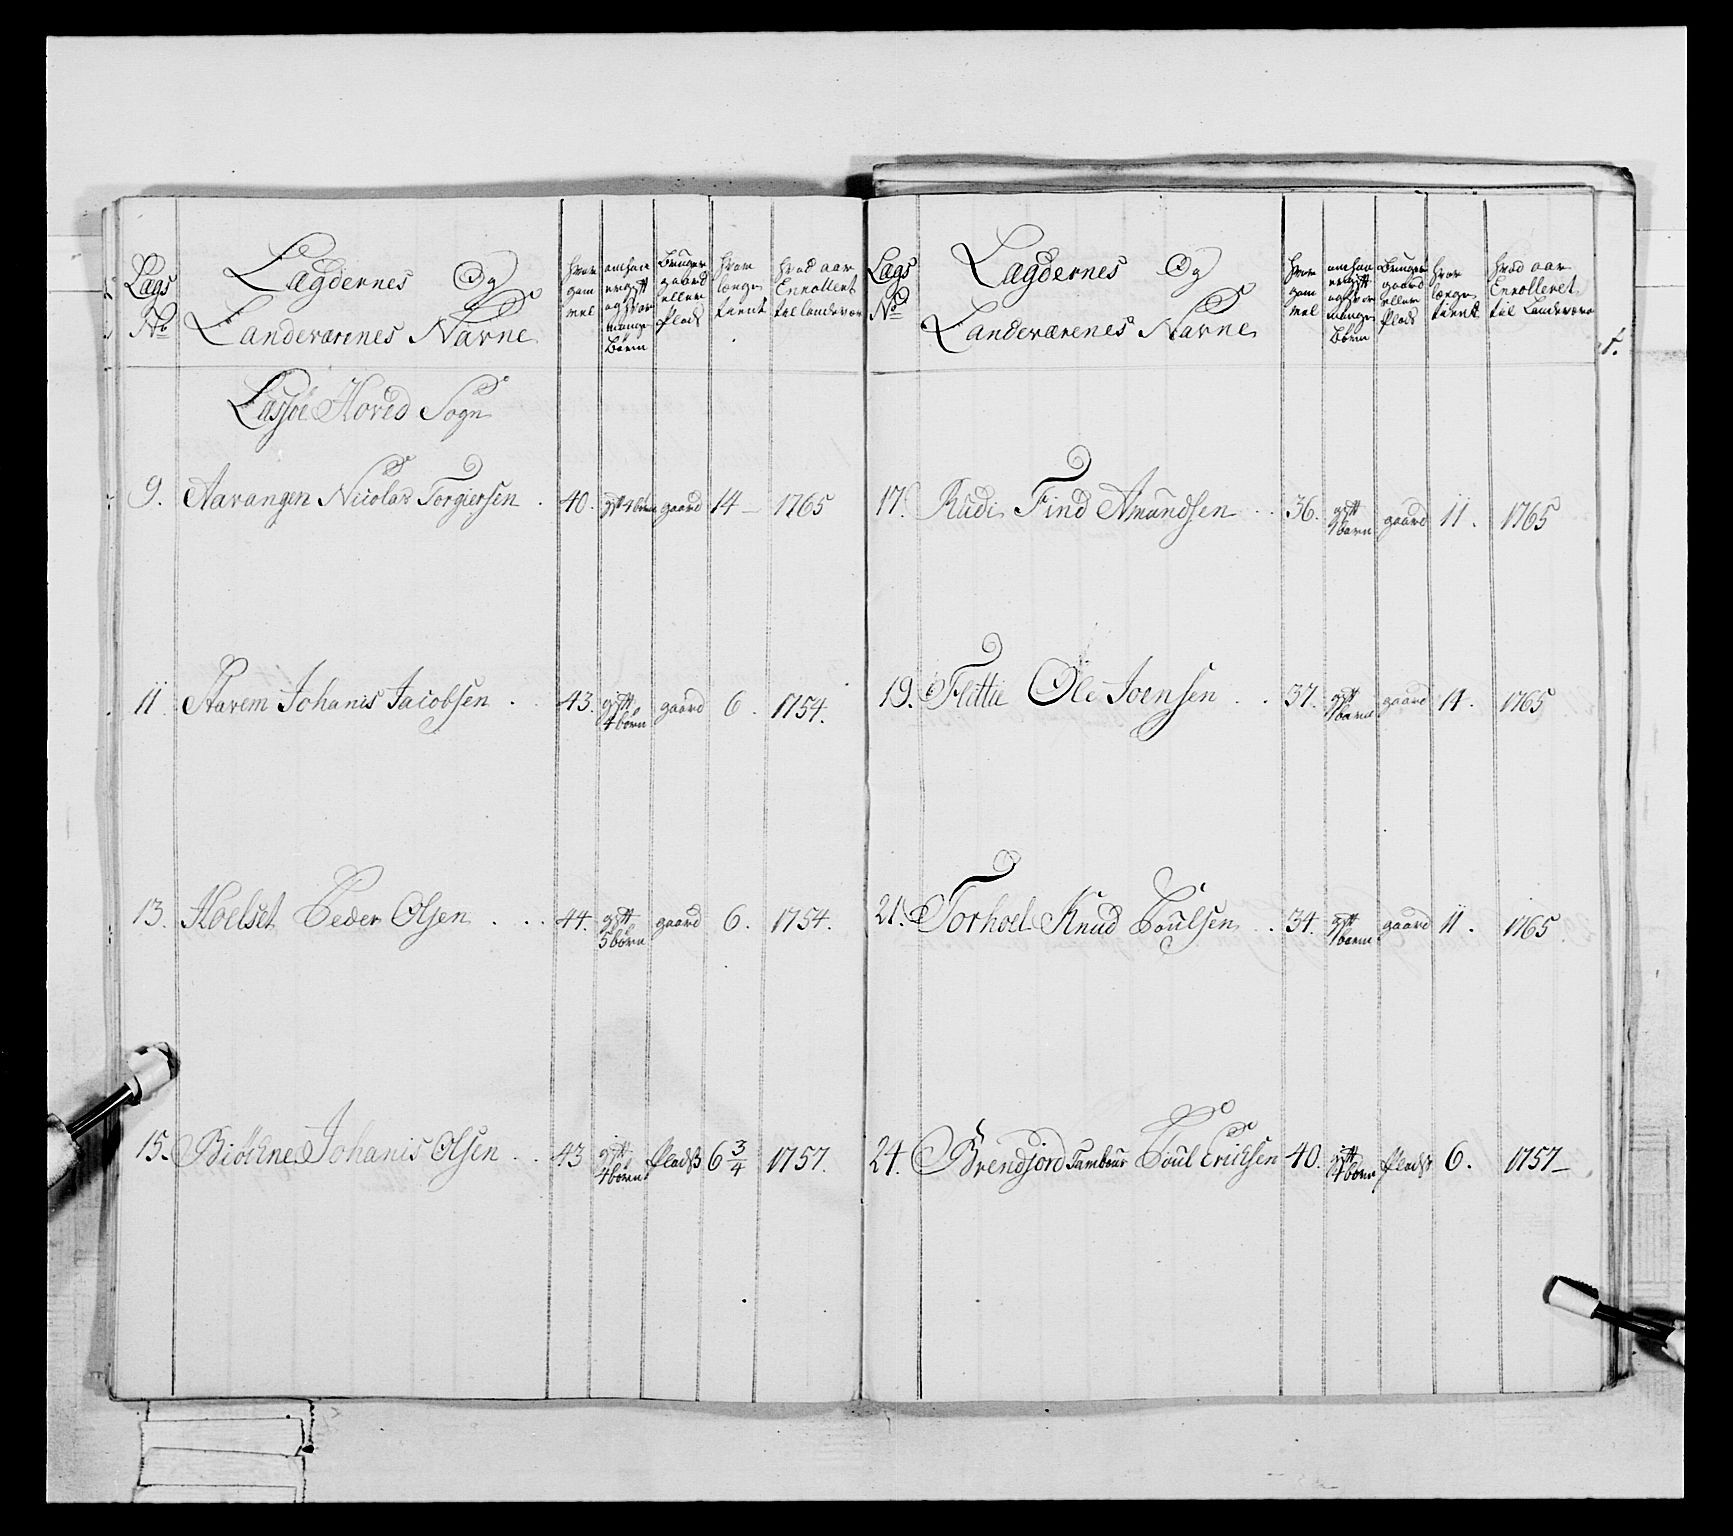 Lægs
No
Lægdernes Og
Landeværenes Navne
hvor
gam
mel
om han
er gift
og hvor
mange
Börn
Bruger
gaard
eller
Plads
hvor
længe
tient
hvad aar
Enrolleret
til Landevær
Lassöe Hoved Sogn
9. Aavangen Nicolas Torgiersen . 40. gift 4 börn gaard 14 – 1765
11 Stavem Johanis Jacobsen . . 43. gift 4 börn gaard 6 . 1754.
13. Hoelset Peder Olsen . . . 44. gift 5 börn gaard 6 . 1754.
15. Biöcene Johanis Olsen . . 43 gift 4 börn Pladß 6 3/4 1757.
Lægs
No
Lægdernes Og
Landeværenes Navne
hvor
gam
mel
om han
er gift
og hvor
mange
Börn
Bruger
gaard
eller
Plads
hvor
længe
tient
hvad aar
Enrolleret
til Landevære
17. Rudi Find Amundsen . . 36. gift 1 barn gaard 11 . 1765
19. Flittie Ole Joensen . . 37. gift 1 barn gaard 14 . 1765
21. Torhoel Knud Poulsen . . 34. gift 1 barn gaard 11 . 1765
24. Brendjord Tambour Poul Erichsen 40. gift 4 börn Pladß 6 . 1757 –